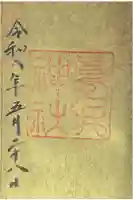 神社
令和八年五月二十八日